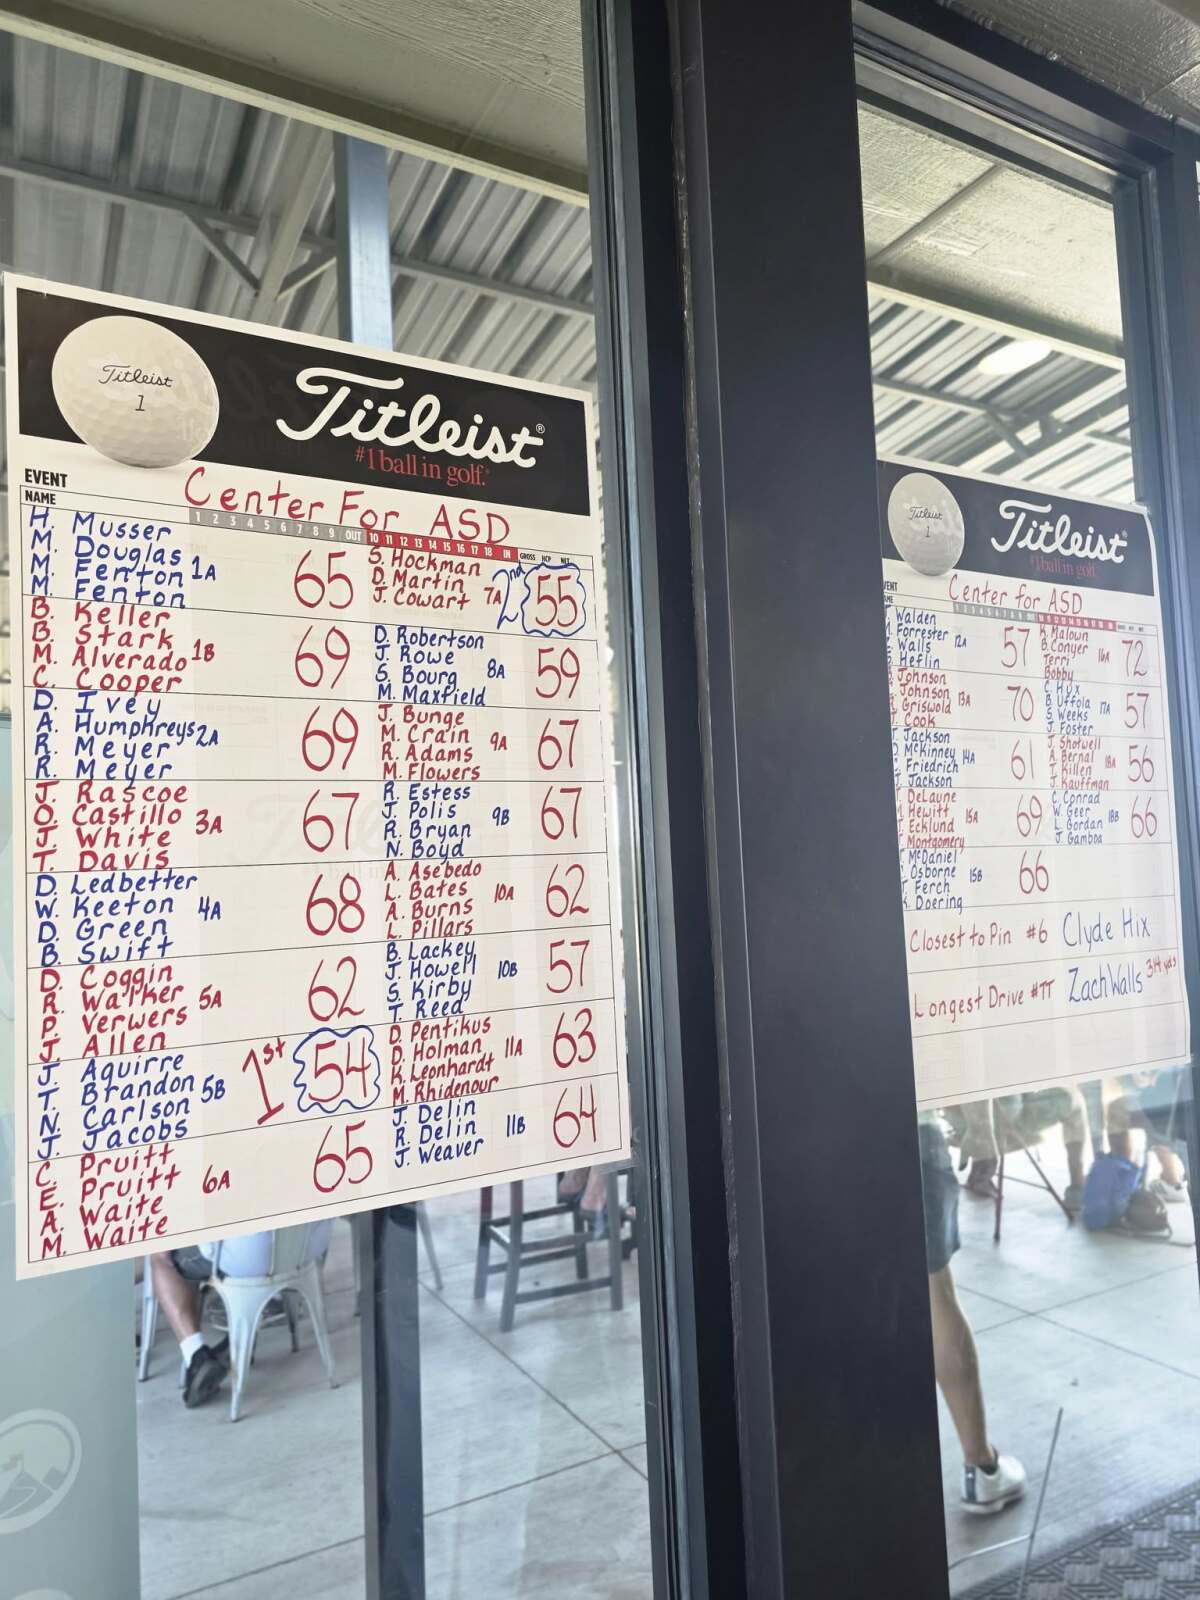 Titleist
1
Titleist®
#1 ball in golf.®
EVENT
Center For ASD
NAME
1 2 3 4 5 6 7 8 9 OUT 10 11 12 13 14 15 16 17 18 IN GROSS HCP NET
H. Musser
M. Douglas
M. Fenton
M. Fenton
1A
65
B. Keller
B. Stark
M. Alverado
C. Cooper
1B
69
D. Ivey
A. Humphreys
R. Meyer
R. Meyer
2A
69
J. Rascoe
O. Castillo
J. White
T. Davis
3A
67
D. Ledbetter
W. Keeton
D. Green
B. Swift
4A
68
D. Coggin
R. Walker
P. Verwers
J. Allen
5A
62
J. Aguirre
T. Brandon
N. Carlson
J. Jacobs
5B
1st
54
C. Pruitt
E. Pruitt
A. Waite
M. Waite
6A
65
S. Hockman
D. Martin
J. Cowart
7A
2nd
55
D. Robertson
J. Rowe
S. Bourg
M. Maxfield
8A
59
J. Bunge
M. Crain
R. Adams
M. Flowers
9A
67
R. Estess
J. Polis
R. Bryan
N. Boyd
9B
67
A. Asebedo
L. Bates
A. Burns
L. Pillars
10A
62
B. Lackey
J. Howell
S. Kirby
T. Reed
10B
57
D. Pentikus
D. Holman
K. Leonhardt
M. Rhidenour
11A
63
J. Delin
R. Delin
J. Weaver
11B
64
Titleist
1
Titleist®
#1 ball in golf.
VENT
Center for ASD
AME
1 2 3 4 5 6 7 8 9 OUT 10 11 12 13 14 15 16 17 18
Walden
Forrester
Walls
Heflin
12A
57
Johnson
Johnson
Griswold
Cook
13A
70
Jackson
McKinney
Friedrich
Jackson
14A
61
DeLaune
Hewitt
Ecklund
Montgomery
15A
69
McDaniel
Osborne
Ferch
Doering
15B
66
K. Malown
B. Conyer
Terri
Bobby
16A
72
C. Hux
B. Uffola
S. Weeks
J. Foster
17A
57
J. Shotwell
A. Bernal
T. Killen
J. Kauffman
18A
56
C. Conrad
W. Geer
L. Gordan
J. Gamboa
18B
66
Closest to Pin #6 Clyde Hix
Longest Drive #17 Zach Walls 314 yds